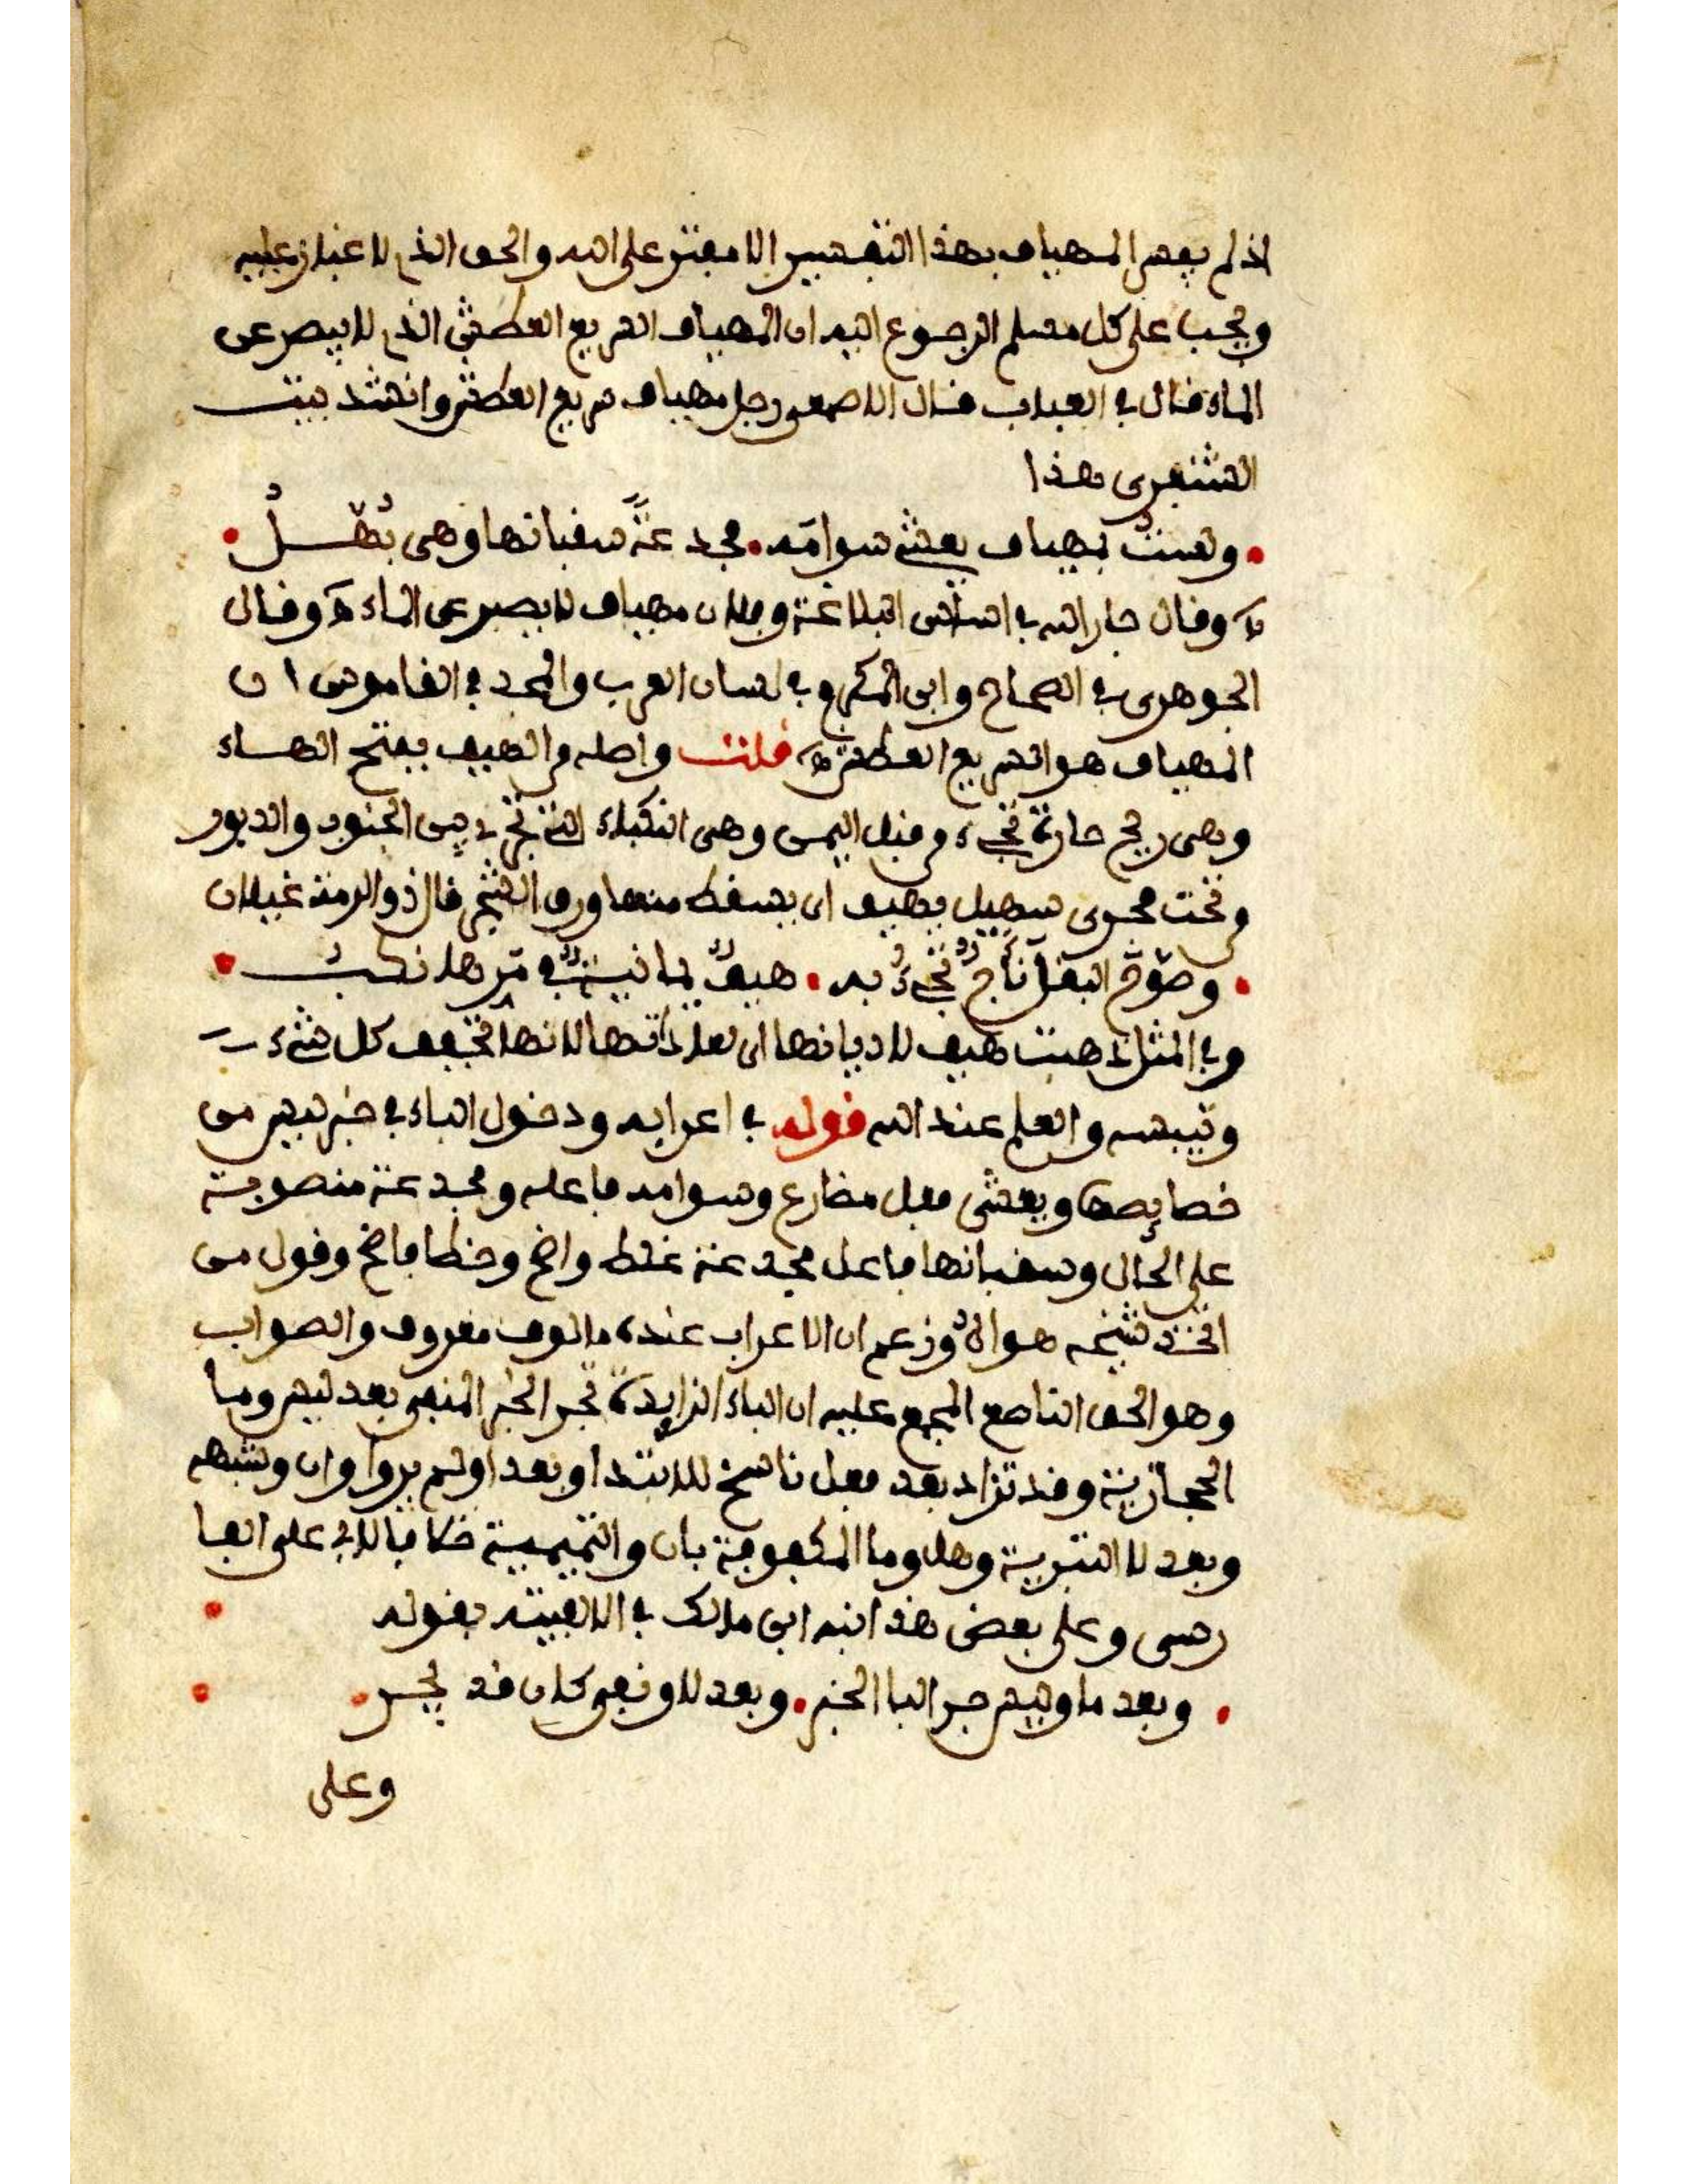 اذ لم يفسر المهياف بهذا التفسير الا مفتر على الله والحق الذى لا غبار عليه
ويجب على كل مسلم الرجوع اليه ان المهياف السريع العطش الذى لا يصبر عن
الماء قال فى العباب قال الاصمعى رجل مهياف سريع العطش وانشد بيت
الشنفرى هذا
• ولستُ بمهياف يعشى سوامَه • مجدعةً سقبانها وهى بُهّلُ •
وقال جار الله فى اساس البلاغة وفلان مهياف لا يصبر عن الماء وقال
الجوهرى فى الصحاح وابن المكرم فى لسان العرب والمجد فى القاموس ان
المهياف هو السريع العطش قلت واصله من الهيف بفتح الهاء
وهى ريح حارة تجىء من قبل اليمن وهى النكباء التى تجرى بين الجنوب والدبور
من تحت مجرى سهيل يهيف اى يسقط منها ورق الشجر قال ذو الرمة غيلان
• وصوّح البقلَ نأّاجٌ تجىءُ به • هيفٌ يمانيةٌ فى مرّها نكبُ •
وفى المثل ذهبت هيف لاديانها اى لعاداتها لانها تجفف كل شىء
وتيبسه والعلم عند الله قوله فى اعرابه ودخول الباء فى خبر ليس من
خصايصها ويعشى فعل مضارع وسوامه فاعله ومجدعة منصوبة
على الحال وسقبانها فاعل مجدعة غلط واضح وخطا فاضح وقول من
اتخذ شيخه هواه وزعم ان الاعراب عنده مالوف معروف والصواب
وهو الحق الناصع المجمع عليه ان الباء الزايدة تجر الخبر المنفى بعد ليس وما
الحجازية وقد تزاد بعد فعل ناسخ للابتدا وبعد اولم يروا وان وشبهه
وبعد لا التبرية وهل وما المكفوفة بان والتميمية خلافا لابى على الفا
رسى وعلى بعض هذا نبه ابن مالك فى الالفية بقوله
• وبعد ما وليس جر البا الخبر • وبعد لا ونفى كان قد يجر •
وعلى